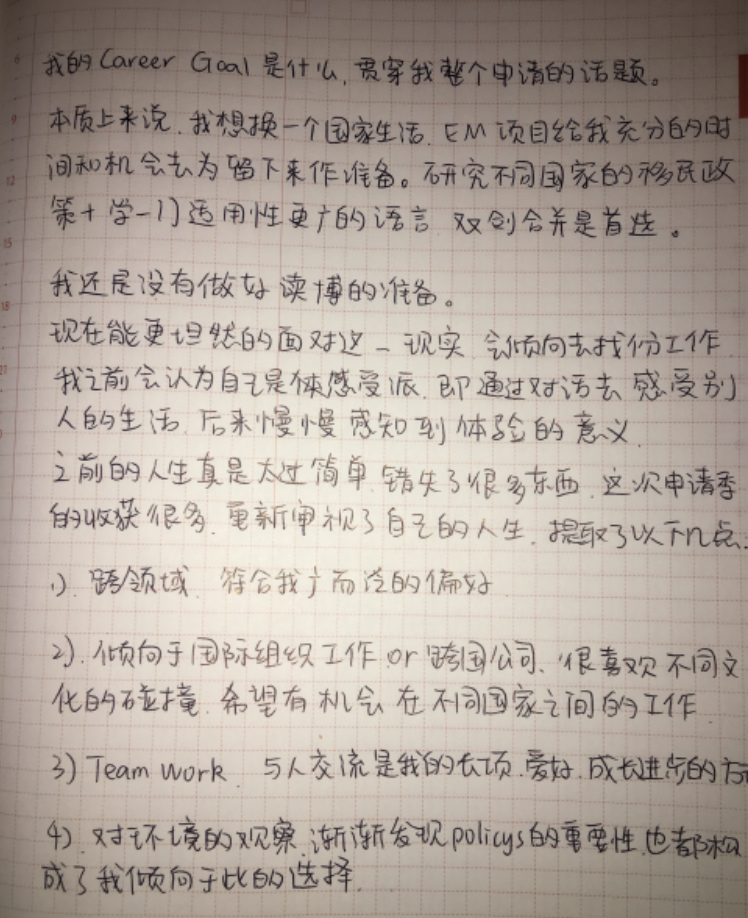 我的Career Goal是什么,贯穿我整个申请的话题。
本质上来说,我想换一个国家生活,EM项目给我充分的时
间和机会去为留下来作准备。研究不同国家的移民政
策+学一门适用性更广的语言 双剑合并是首选。
我还是没有做好读博的准备。
现在能更坦然的面对这一现实 会倾向去找份工作
我之前会认为自己是体感受派,即通过对话去感受别
人的生活,后来慢慢感知到体验的意义,
之前的人生真是太过简单,错失了很多东西,这次申请季
的收获很多,重新审视了自己的人生,提取了以下几点:
1).跨领域,符合我广而泛的偏好
2).倾向于国际组织工作or跨国公司、很喜欢不同文
化的碰撞,希望有机会在不同国家之间的工作
3)Team work,与人交流是我的长项,爱好,成长进步的方
4).对环境的观察,渐渐发现policys的重要性,也都构
成了我倾向于此的选择.